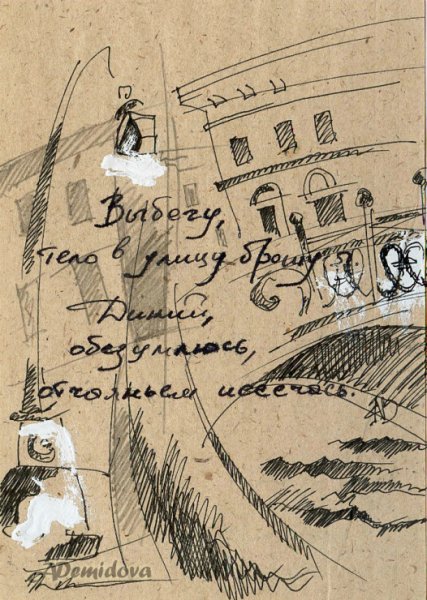 Выбегу,
тело в улицу брошу я.
Дикий,
обезумлюсь,
отчаяньем иссечась.
AD
ADemidova